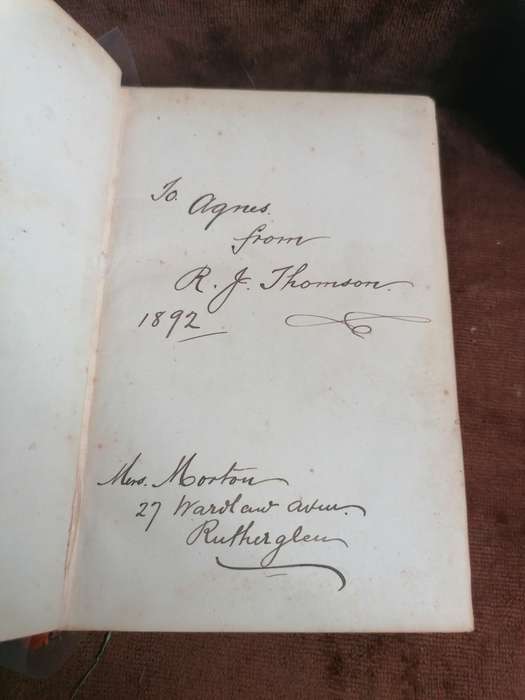 To Agnes.
from
R. J. Thomson.
1892
Mrs. Morton
27 Wardlaw aven.
Rutherglen